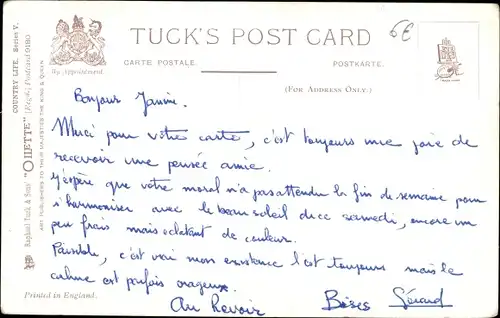 TUCK'S POST CARD
CARTE POSTALE.
POSTKARTE.
(FOR ADDRESS ONLY.)
By Appointment.
6€
COUNTRY LIFE. Series V.
Raphael Tuck & Sons' "OILETTE" (Regd.) Postcard 9180
ART PUBLISHERS TO THEIR MAJESTIES THE KING & QUEEN.
Bonjour Janine.
Merci pour votre carte, c'est toujours une joie de
recevoir une pensée amie.
J'espère que votre moral n'a pas attendu la fin de semaine pour
s'harmoniser avec le beau soleil de ce samedi, encore un
peu frais mais éclatant de couleur.
Paisible, c'est vrai mon existence l'est toujours mais le
calme est parfois orageux.
Au Revoir Bises Gérard
Printed in England.